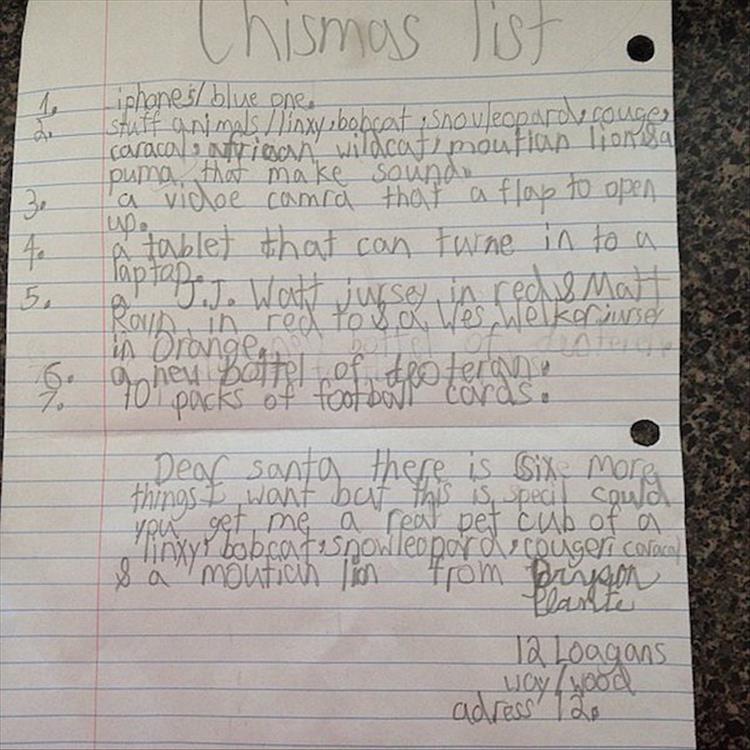 Chismas list
1. iphone5/ blue one.
2. stuff animals/linxy, bobcat, snowleopard, couger,
caracal, african wildcat, moutian lion & a
puma that make sound.
3. a vidoe camra that a flap to open
up.
4. a tablet that can turne in to a
laptap.
5. a J.J. Watt jursey in red & Matt
in red to & a Wes Welker jurser
in Orange.
6. a new bottel of deoteran.
7. 10 packs of football cards.
Dear santa there is six more
things I want but this is specil could
you get me a real pet cub of a
linxy, bobcat, snowleopard, couger, caracal
& a moutian lion from
Plante
12 Loagans
way/wood
adress 12.